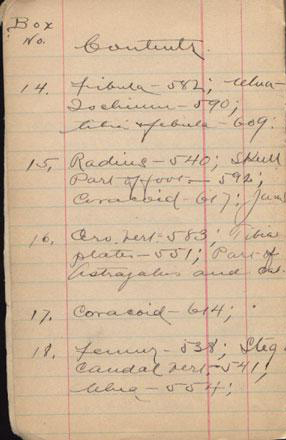 Box
No. Contents
14. Fibula - 582; Ulna -
Ischium - 590;
tibia & fibula - 609.
15. Radius - 540; Skull
Part of foot - 592;
Coracoid - 617;
16. Cro. vert - 583; Tibia
plates - 551; Part of
Astragalus and
17. Coracoid - 614;
18. Femur - 538; Steg
Caudal vert - 541;
Ulna - 554;